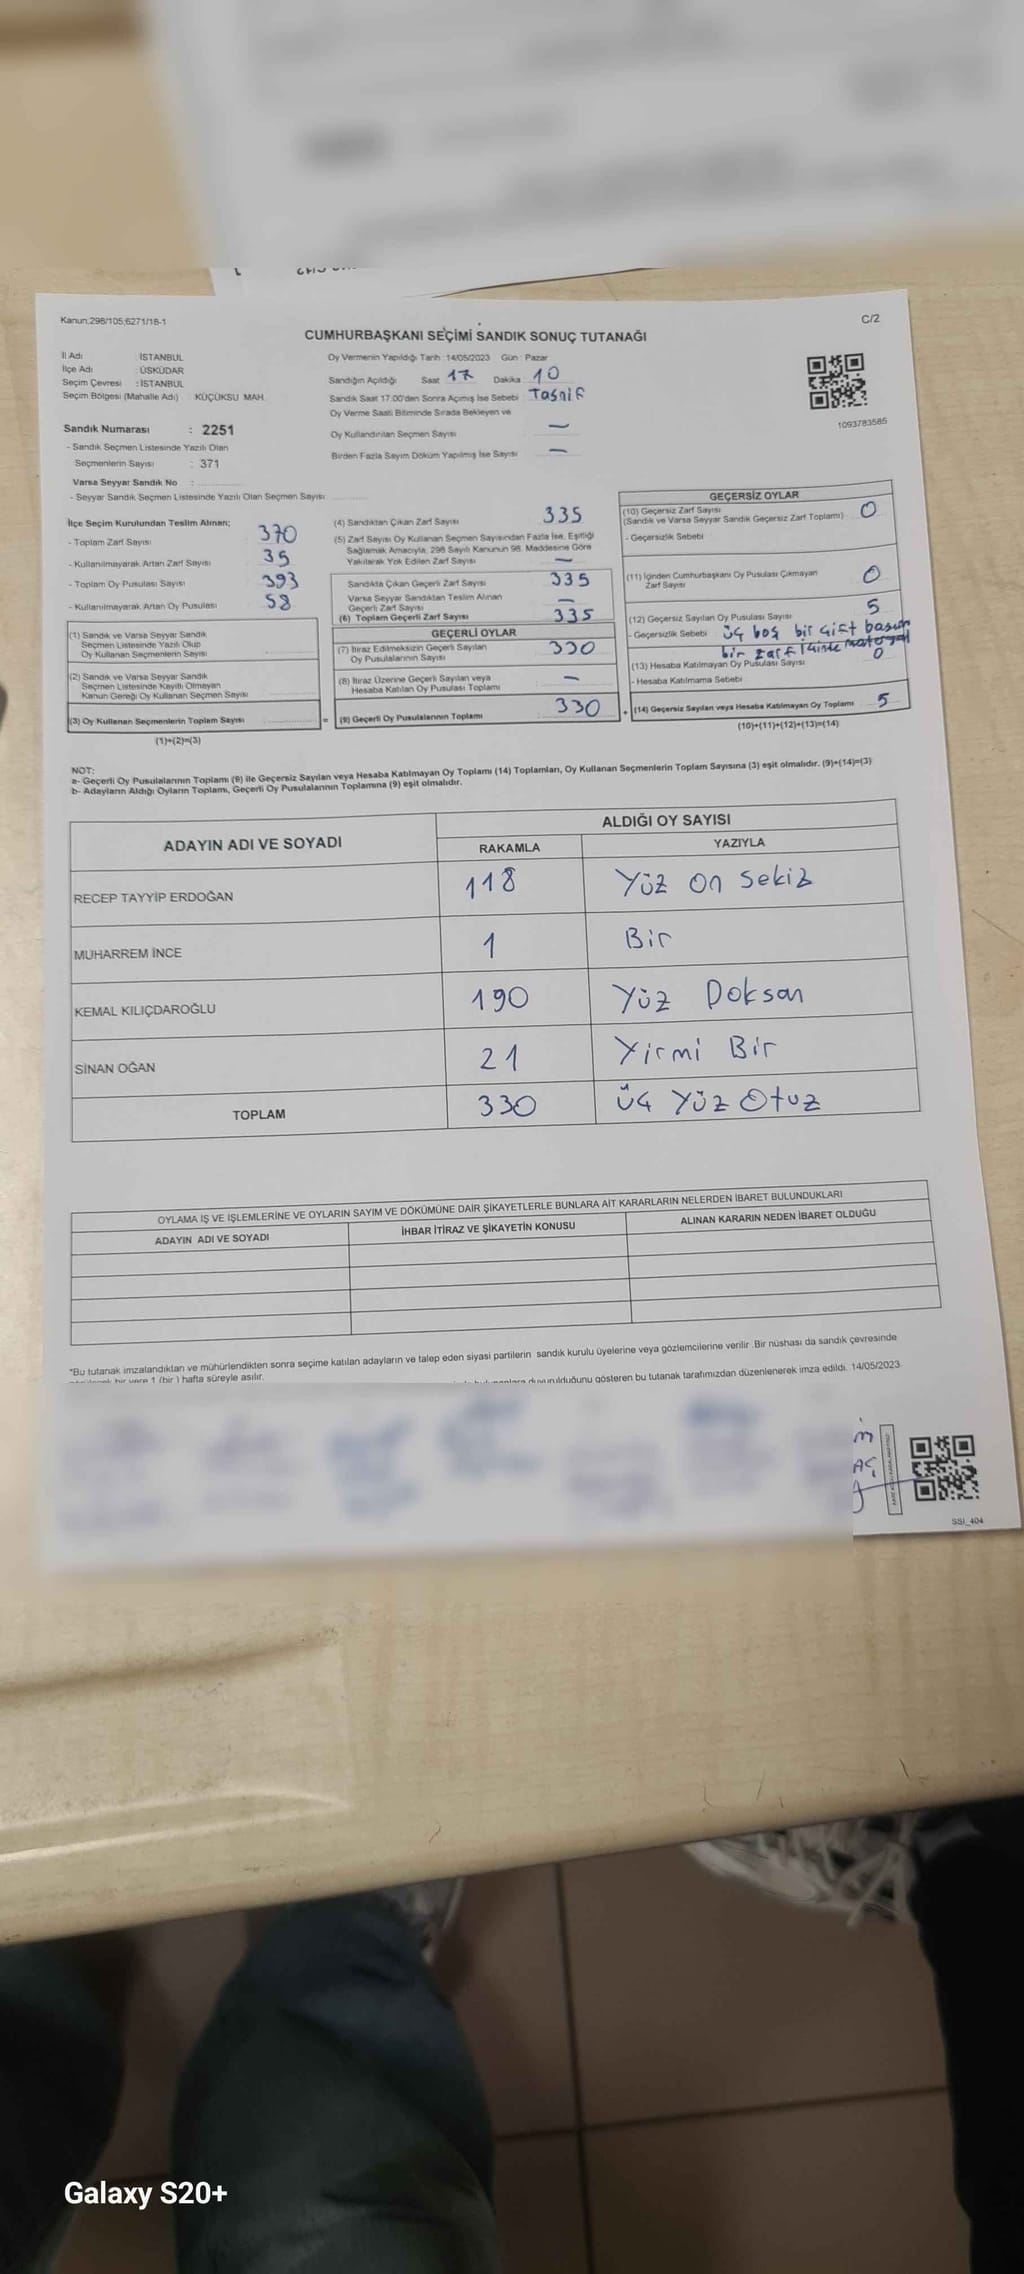 Kanun;298/105;6271/18-1
C/2
CUMHURBAŞKANI SEÇİMİ SANDIK SONUÇ TUTANAĞI
İl Adı : İSTANBUL
İlçe Adı : ÜSKÜDAR
Seçim Çevresi : İSTANBUL
Seçim Bölgesi (Mahalle Adı) KÜÇÜKSU MAH.
Sandık Numarası : 2251
- Sandık Seçmen Listesinde Yazılı Olan
Seçmenlerin Sayısı : 371
Varsa Seyyar Sandık No :
- Seyyar Sandık Seçmen Listesinde Yazılı Olan Seçmen Sayısı
Oy Vermenin Yapıldığı Tarih :14/05/2023 Gün : Pazar
Sandığın Açıldığı Saat 17 Dakika 10
Sandık Saat 17.00'den Sonra Açılmış İse Sebebi : Tasnif
Oy Verme Saati Bitiminde Sırada Bekleyen ve
Oy Kullandırılan Seçmen Sayısı —
Birden Fazla Sayım Döküm Yapılmış İse Sayısı —
1093783585
İlçe Seçim Kurulundan Teslim Alınan;
- Toplam Zarf Sayısı 370
- Kullanılmayarak Artan Zarf Sayısı 35
- Toplam Oy Pusulası Sayısı 393
- Kullanılmayarak Artan Oy Pusulası 58
(1) Sandık ve Varsa Seyyar Sandık
Seçmen Listesinde Yazılı Olup
Oy Kullanan Seçmenlerin Sayısı
(2) Sandık ve Varsa Seyyar Sandık
Seçmen Listesinde Kayıtlı Olmayan
Kanun Gereği Oy Kullanan Seçmen Sayısı
(3) Oy Kullanan Seçmenlerin Toplam Sayısı
(1)+(2)=(3)
(4) Sandıktan Çıkan Zarf Sayısı 335
(5) Zarf Sayısı Oy Kullanan Seçmen Sayısından Fazla İse, Eşitliği
Sağlamak Amacıyla, 298 Sayılı Kanunun 98. Maddesine Göre
Yakılarak Yok Edilen Zarf Sayısı —
Sandıkta Çıkan Geçerli Zarf Sayısı 335
Varsa Seyyar Sandıktan Teslim Alınan
Geçerli Zarf Sayısı —
(6) Toplam Geçerli Zarf Sayısı 335
GEÇERLİ OYLAR
(7) İtiraz Edilmeksizin Geçerli Sayılan
Oy Pusulalarının Sayısı 330
(8) İtiraz Üzerine Geçerli Sayılan veya
Hesaba Katılan Oy Pusulası Toplamı —
= (9) Geçerli Oy Pusulalarının Toplamı 330
GEÇERSİZ OYLAR
(10) Geçersiz Zarf Sayısı
(Sandık ve Varsa Seyyar Sandık Geçersiz Zarf Toplamı) 0
- Geçersizlik Sebebi
(11) İçinden Cumhurbaşkanı Oy Pusulası Çıkmayan
Zarf Sayısı 0
(12) Geçersiz Sayılan Oy Pusulası Sayısı 5
- Geçersizlik Sebebi üç boş bir çift basım
bir zarf içinde materyal
(13) Hesaba Katılmayan Oy Pusulası Sayısı 0
- Hesaba Katılmama Sebebi
+ (14) Geçersiz Sayılan veya Hesaba Katılmayan Oy Toplamı 5
(10)+(11)+(12)+(13)=(14)
NOT:
a- Geçerli Oy Pusulalarının Toplamı (9) ile Geçersiz Sayılan veya Hesaba Katılmayan Oy Toplamı (14) Toplamları, Oy Kullanan Seçmenlerin Toplam Sayısına (3) eşit olmalıdır. (9)+(14)=(3)
b- Adayların Aldığı Oyların Toplamı, Geçerli Oy Pusulalarının Toplamına (9) eşit olmalıdır.
ADAYIN ADI VE SOYADI
ALDIĞI OY SAYISI
RAKAMLA YAZIYLA
RECEP TAYYİP ERDOĞAN 118 Yüz On Sekiz
MUHARREM İNCE 1 Bir
KEMAL KILIÇDAROĞLU 190 Yüz Doksan
SİNAN OĞAN 21 Yirmi Bir
TOPLAM 330 üç Yüz Otuz
OYLAMA İŞ VE İŞLEMLERİNE VE OYLARIN SAYIM VE DÖKÜMÜNE DAİR ŞİKAYETLERLE BUNLARA AİT KARARLARIN NELERDEN İBARET BULUNDUKLARI
ADAYIN ADI VE SOYADI İHBAR İTİRAZ VE ŞİKAYETİN KONUSU ALINAN KARARIN NEDEN İBARET OLDUĞU
*Bu tutanak imzalandıktan ve mühürlendikten sonra seçime katılan adayların ve talep eden siyasi partilerin sandık kurulu üyelerine veya gözlemcilerine verilir. Bir nüshası da sandık çevresinde
bir yere 1 (bir) hafta süreyle asılır.
duyurulduğunu gösteren bu tutanak tarafımızdan düzenlenerek imza edildi. 14/05/2023
SSI_404
Galaxy S20+